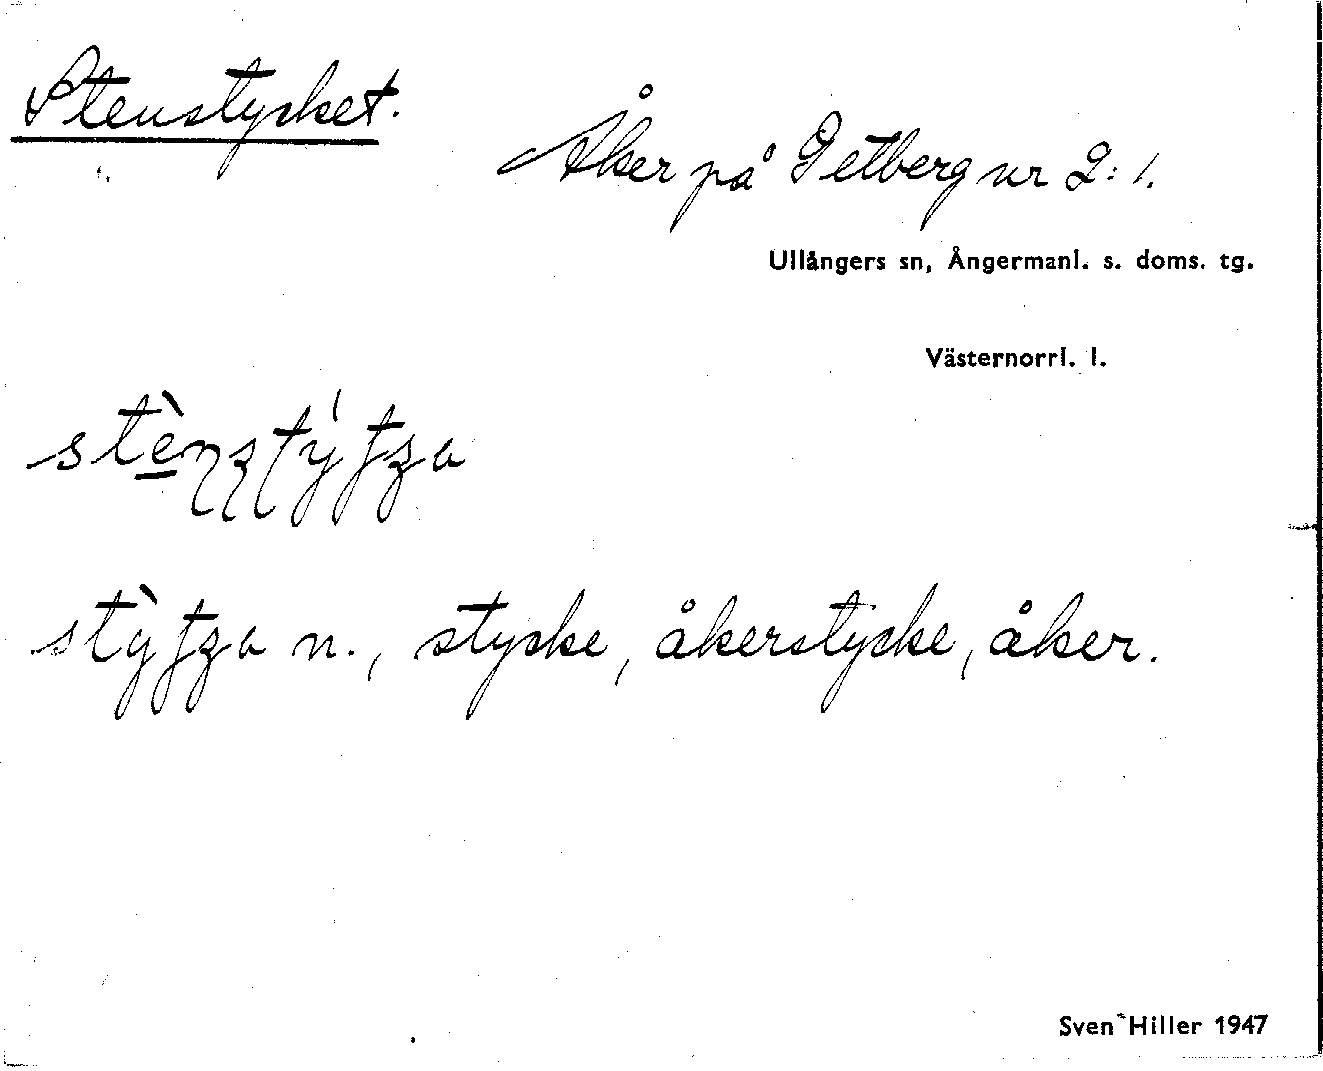 Stenstycket.
Åker på Getberg nr 2:1.
Ullångers sn, Ångermanl. s. doms. tg.
Västernorrl. l.
n., stycke, åkerstycke, åker.
Sven Hiller 1947